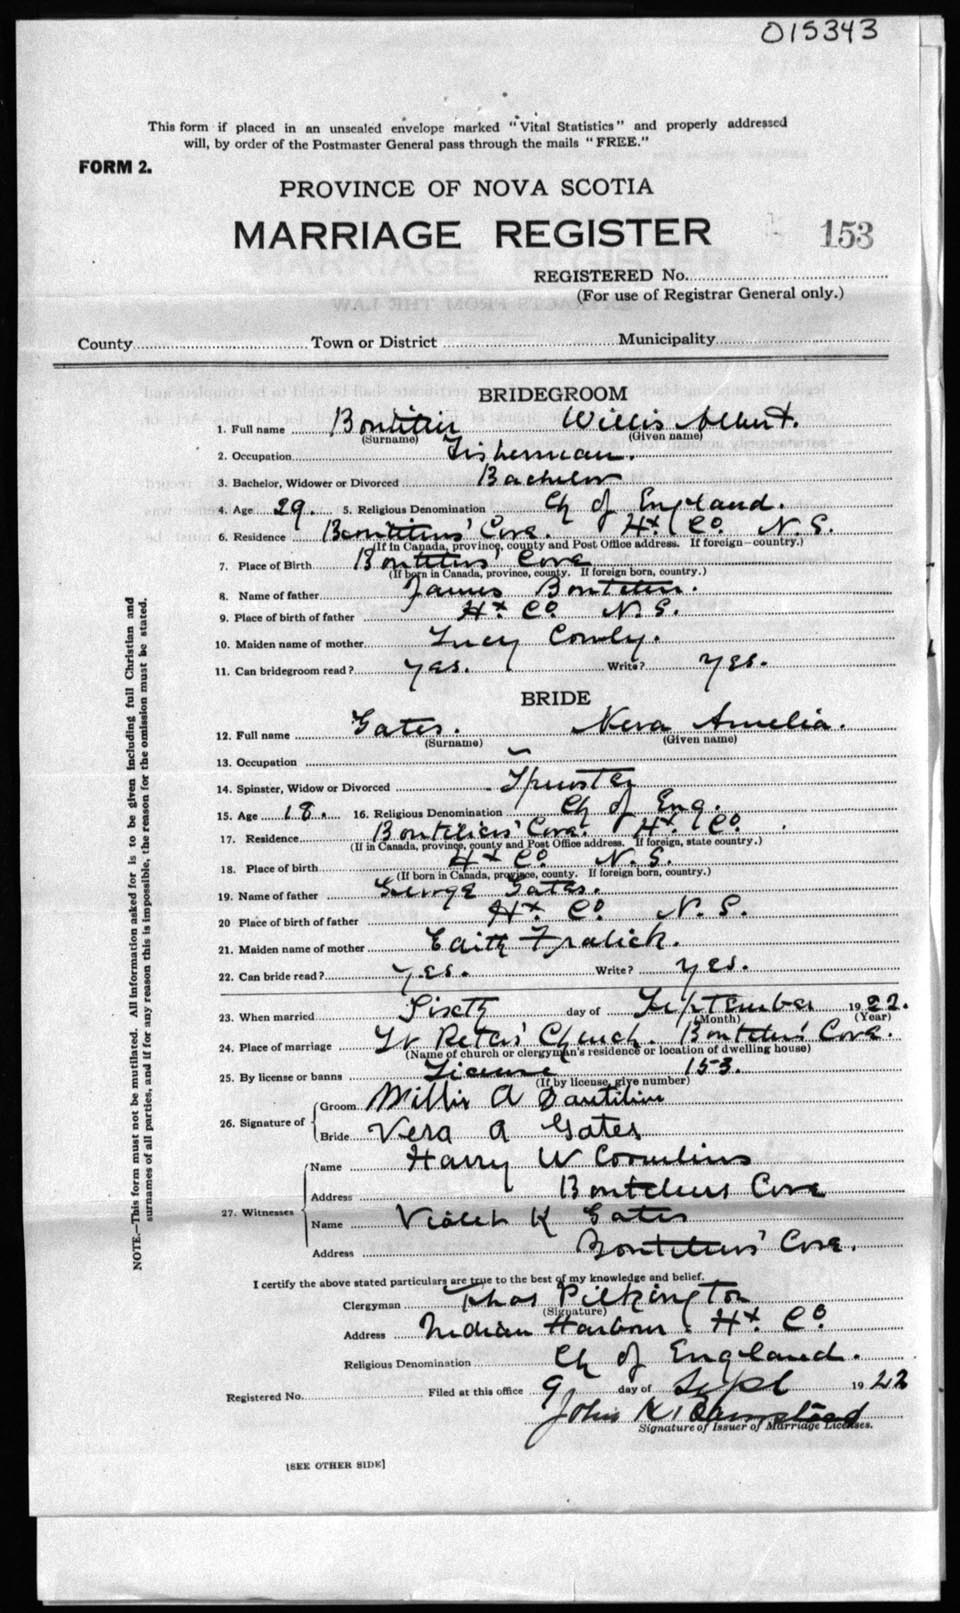 015343
This form if placed in an unsealed envelope marked "Vital Statistics" and properly addressed
will, by order of the Postmaster General pass through the mails "FREE."
FORM 2.
PROVINCE OF NOVA SCOTIA
MARRIAGE REGISTER 153
REGISTERED No.
(For use of Registrar General only.)
County Town or District Municipality
BRIDEGROOM
1. Full name Willis Albert.
(Surname) (Given name)
2. Occupation Fisherman.
3. Bachelor, Widower or Divorced Bachelor
4. Age 29. 5. Religious Denomination Ch of England.
6. Residence Cove. Hx Co. N. S.
(If in Canada, province, county and Post Office address. If foreign—country.)
7. Place of Birth Cove
(If born in Canada, province, county. If foreign born, country.)
8. Name of father James
9. Place of birth of father Hx Co N. S.
10. Maiden name of mother Lucy
11. Can bridegroom read? yes. Write? yes.
BRIDE
12. Full name Gates. Amelia.
(Surname) (Given name)
13. Occupation ~
14. Spinster, Widow or Divorced Spinster
15. Age 18. 16. Religious Denomination Ch of Eng.
17. Residence Cove. Hx. Co.
(If in Canada, province, county and Post Office address. If foreign, state country.)
18. Place of birth Hx Co N. S.
(If born in Canada, province, county. If foreign born, country.)
19. Name of father George Gates.
20 Place of birth of father Hx. Co. N. S.
21. Maiden name of mother Edith Fralick.
22. Can bride read? yes. Write? yes.
23. When married Sixth day of September 1922.
(Month) (Year)
24. Place of marriage St Peters' Church. Cove.
(Name of church or clergyman's residence or location of dwelling house)
25. By license or banns License 153.
(If by license, give number)
26. Signature of Groom Willis A
Bride Vera A Gates
27. Witnesses Name Harry W Cornelius
Address Cove
Name Violet K Gates
Address Cove.
I certify the above stated particulars are true to the best of my knowledge and belief.
Clergyman Thos Pilkington
(Signature)
Address Indian Harbour. Hx. Co.
Religious Denomination Ch of England.
Registered No. Filed at this office 9 day of Sept 1922
John
Signature of Issuer of Marriage Licenses.
[SEE OTHER SIDE]
NOTE.—This form must not be mutilated. All information asked for is to be given including full Christian and
surnames of all parties, and if for any reason this is impossible, the reason for the omission must be stated.